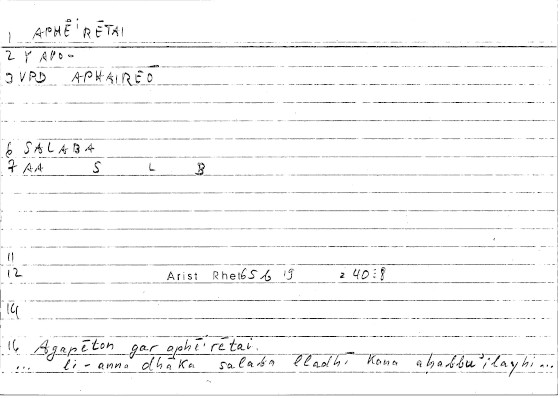 1 APHĒIRĒTAI
2 Y APO-
3 VPD APHAIREŌ
6 SALABA
7 AA S L B
11
12 Arist Rhet 65 b 19 2 40:8
14
16 Agapēton gar aphēirētai.
... li-anna dhāka salaba lladhī kāna aḥabbu ilayhi...